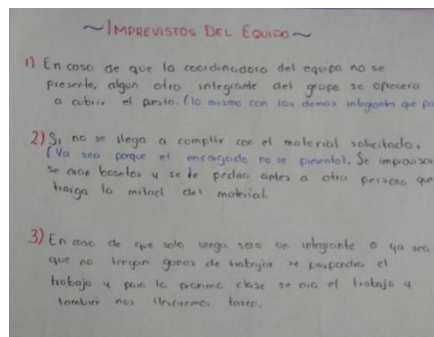 ~IMPREVISTOS DEL EQUIPO~
1) En caso de que la coordinadora del equipo no se
presente, algun otro integrante del grupo se ofrecera
a cubrir el puesto. (lo mismo con los demas integrantes que
2) Si no se llega a complir con el material solicitado.
(Ya sea porque el encargado no se presento). Se
se bosetos y se le pedira antes a otra persona que
traiga la mitad del material.
3) En caso de que solo venga solo un integrante o ya sea
que no tengan ganas de trabajar se pospondra el
trabajo y para la proxima clase se ara el trabajo y
tambien nos llevaremos tarea.